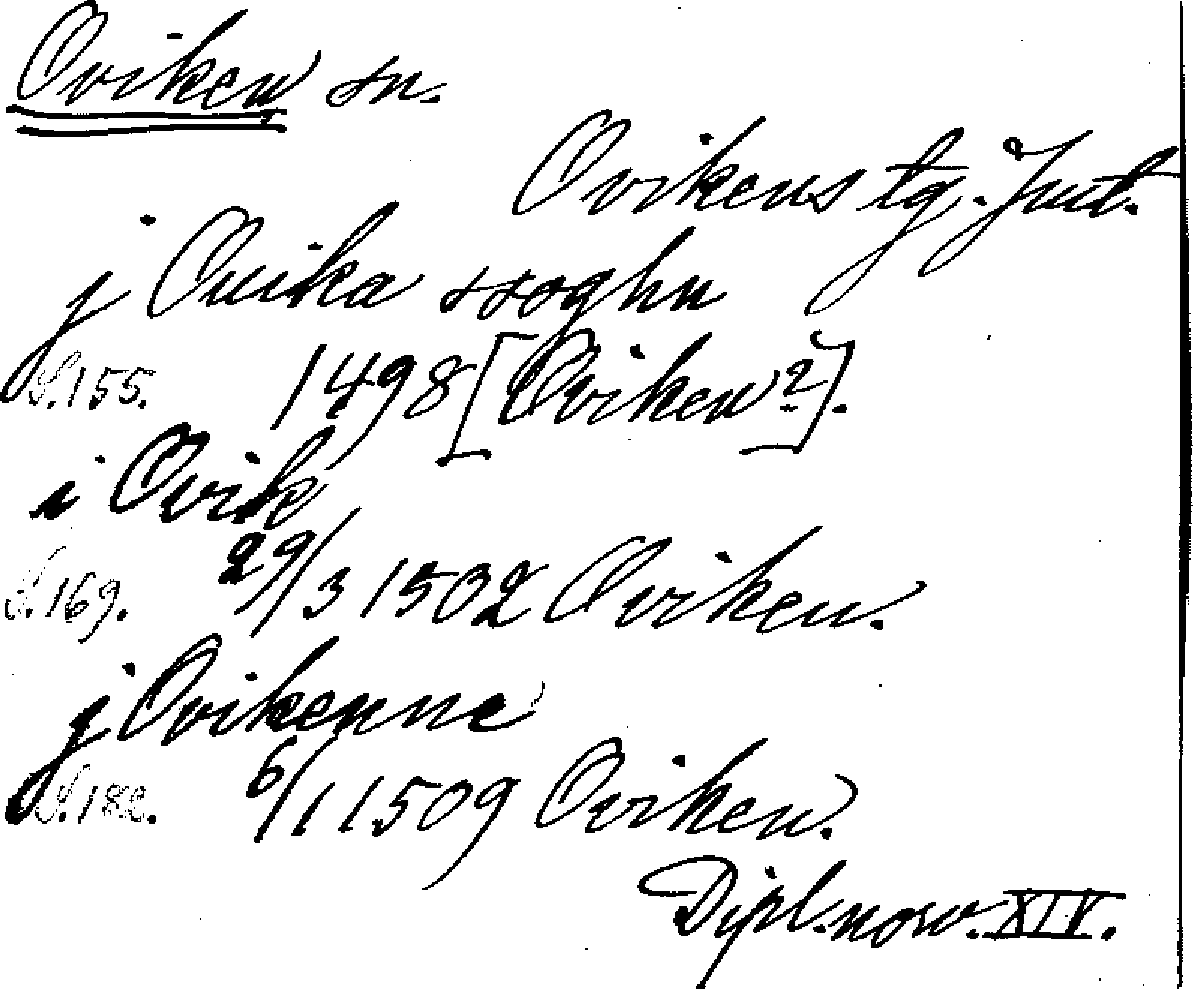 Oviken sn.
Ovikens tg. Jmt.
j Ouika ssoghn
S.155. 1498 [Oviken?].
i Ovik
S.169. 29/3 1502 Oviken.
j Ovikenne
S.182. 6/1 1509 Oviken.
Dipl. norv. XIV.